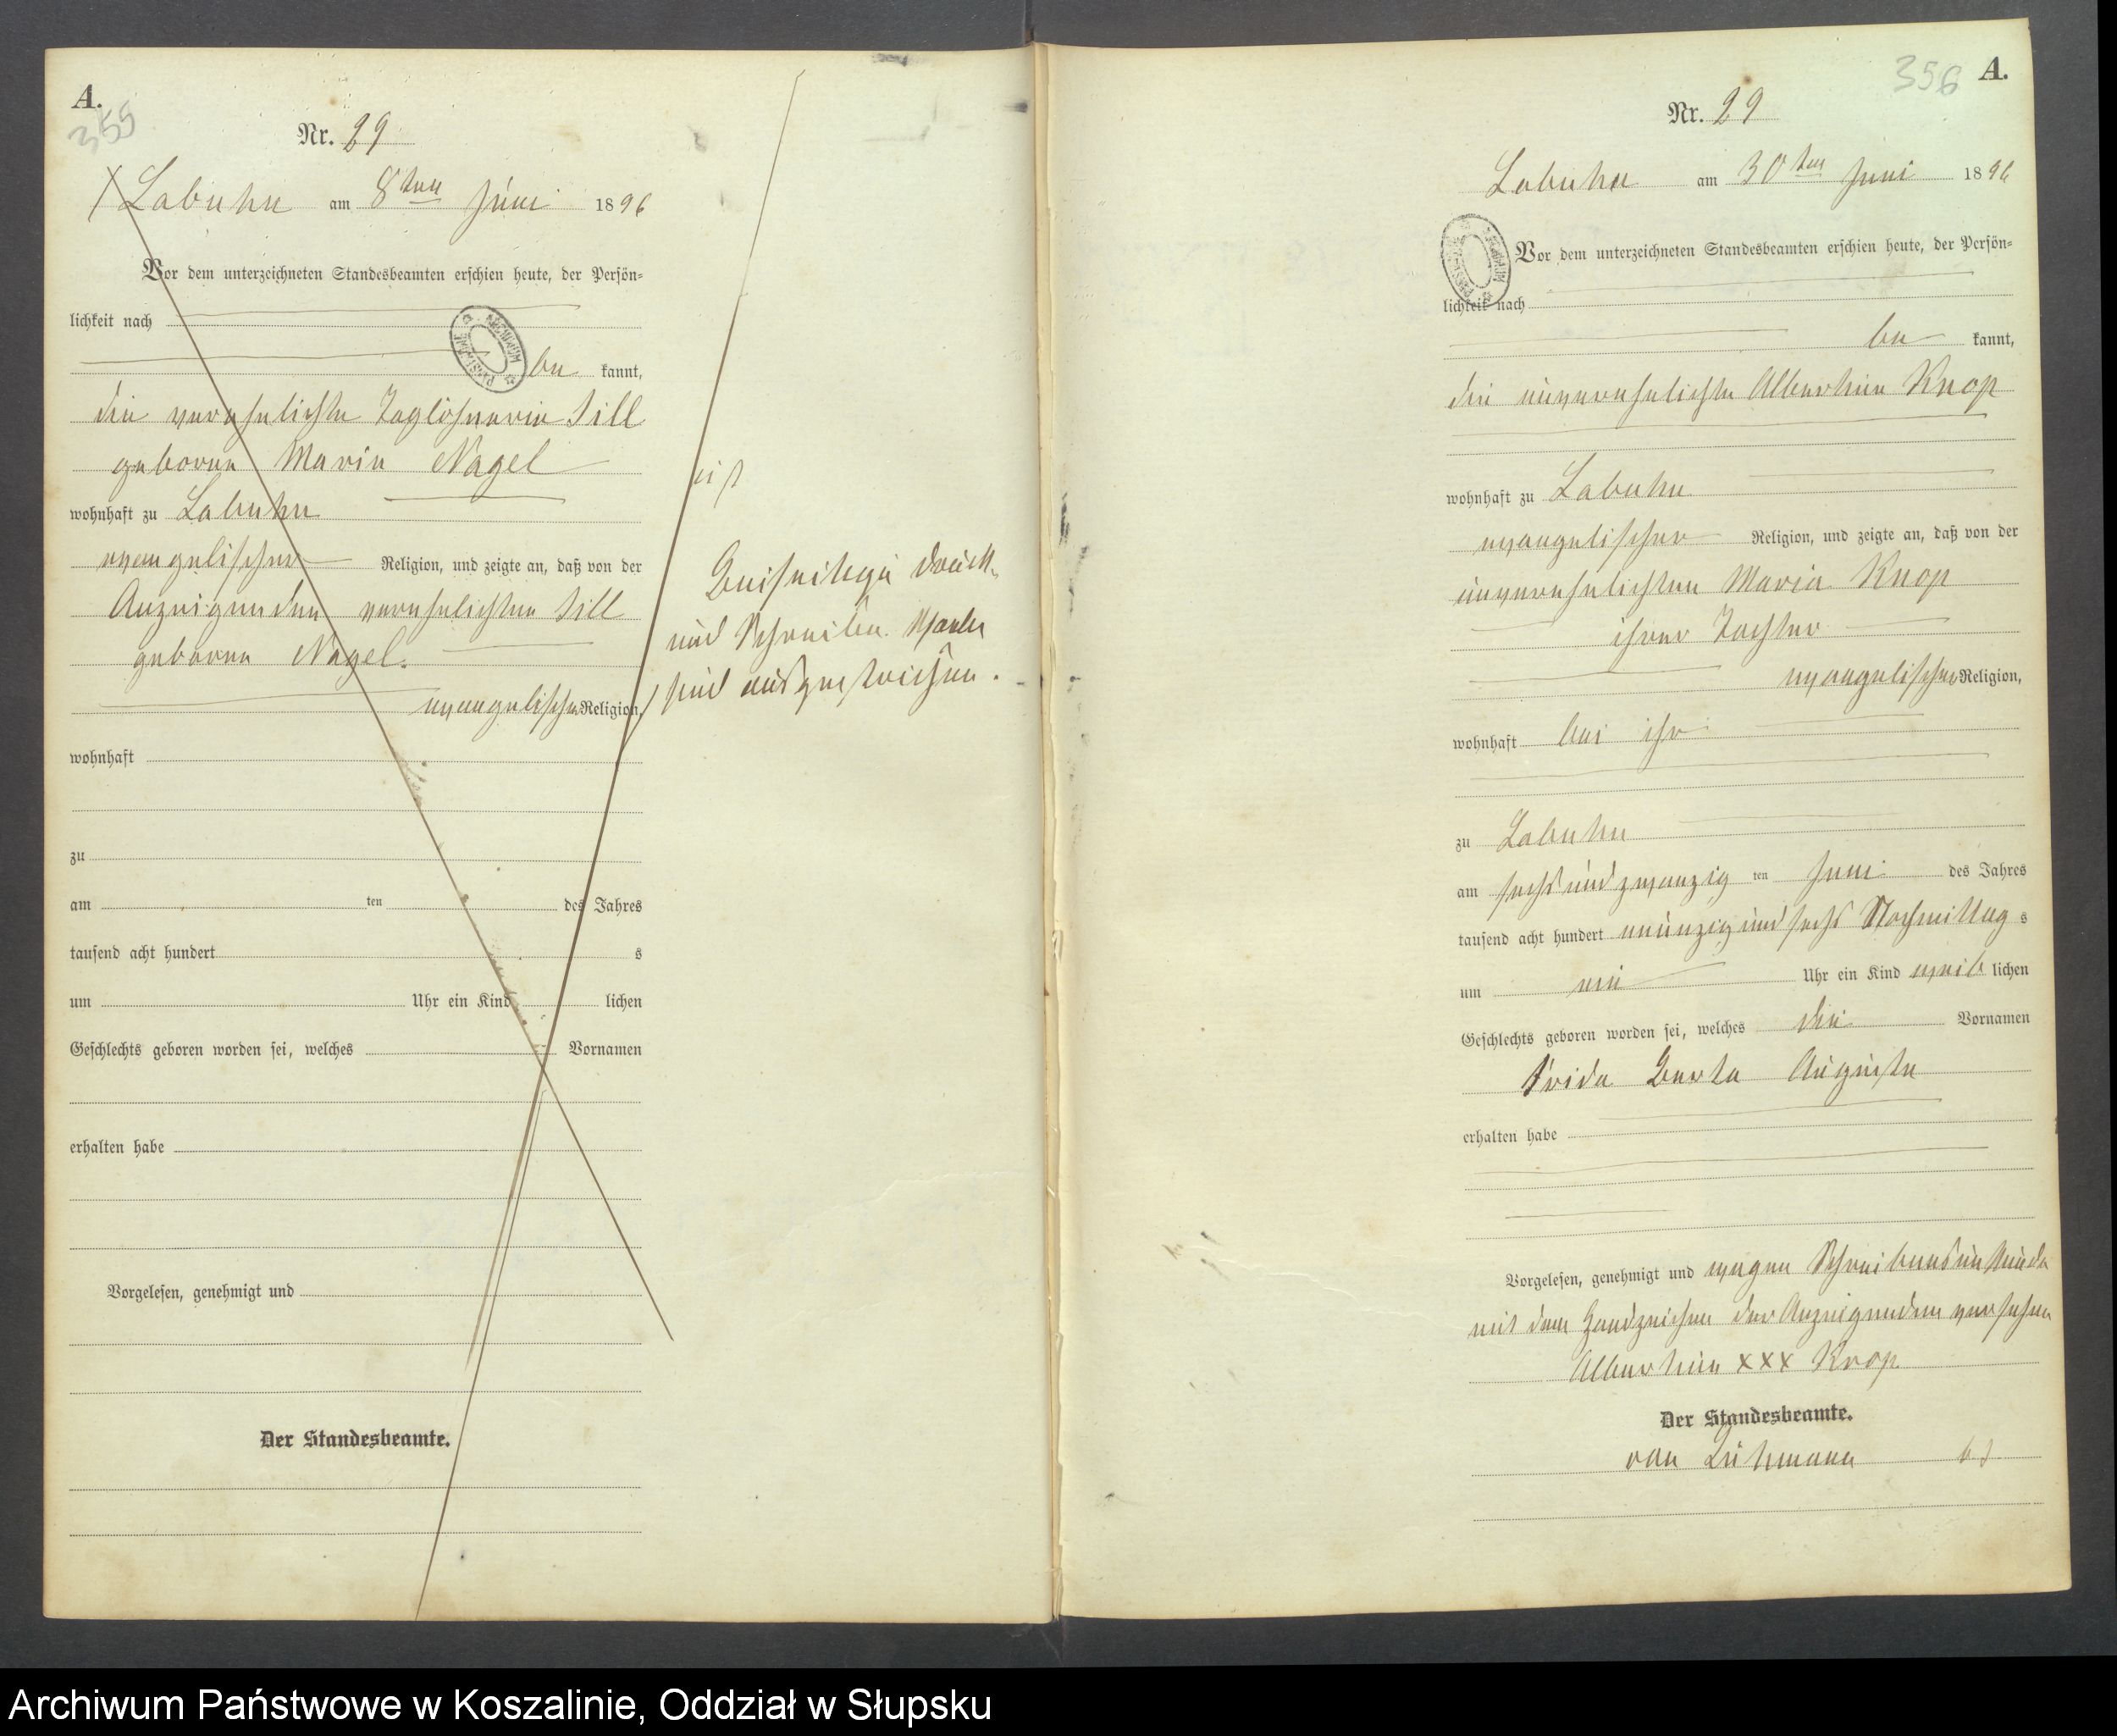 A.
359
Nr. 29
Labuhn am 8ten Juni 1896
Vor dem unterzeichneten Standesbeamten erschien heute, der Persön=
lichkeit nach
be kannt,
die verehelichte Taglöhnerin Till
geborene Marie Nagel
wohnhaft zu Labuhn
evangelischer Religion, und zeigte an, daß von der
Anzeigenden verehelichten Till
geborene Nagel.
evangelischer Religion,
wohnhaft
zu
am ten des Jahres
tausend acht hundert s
um Uhr ein Kind lichen
Geschlechts geboren worden sei, welches Vornamen
erhalten habe
Vorgelesen, genehmigt und
Der Standesbeamte.
Druck=
und Schreiben
sind ausgestrichen.
ARCHIWUM PAŃSTWOWE
356
A.
Nr. 29
Labuhn am 30ten Juni 1896
Vor dem unterzeichneten Standesbeamten erschien heute, der Persön=
lichkeit nach
be kannt,
die unverehelichte Albertine Knop
wohnhaft zu Labuhn
evangelischer Religion, und zeigte an, daß von der
unverehelichten Maria Knop
ihrer Tochter
evangelischer Religion,
wohnhaft bei ihr
zu Labuhn
am sechs und zwanzig ten Juni des Jahres
tausend acht hundert neunzig und sechs Nachmittag s
um ein Uhr ein Kind weib lichen
Geschlechts geboren worden sei, welches die Vornamen
Frida Berta Auguste
erhalten habe
Vorgelesen, genehmigt und wegen Schreibensunkunde
mit dem Handzeichen der Anzeigenden versehen
Albertine XXX Knop
Der Standesbeamte.
von
ARCHIWUM PAŃSTWOWE
Archiwum Państwowe w Koszalinie, Oddział w Słupsku